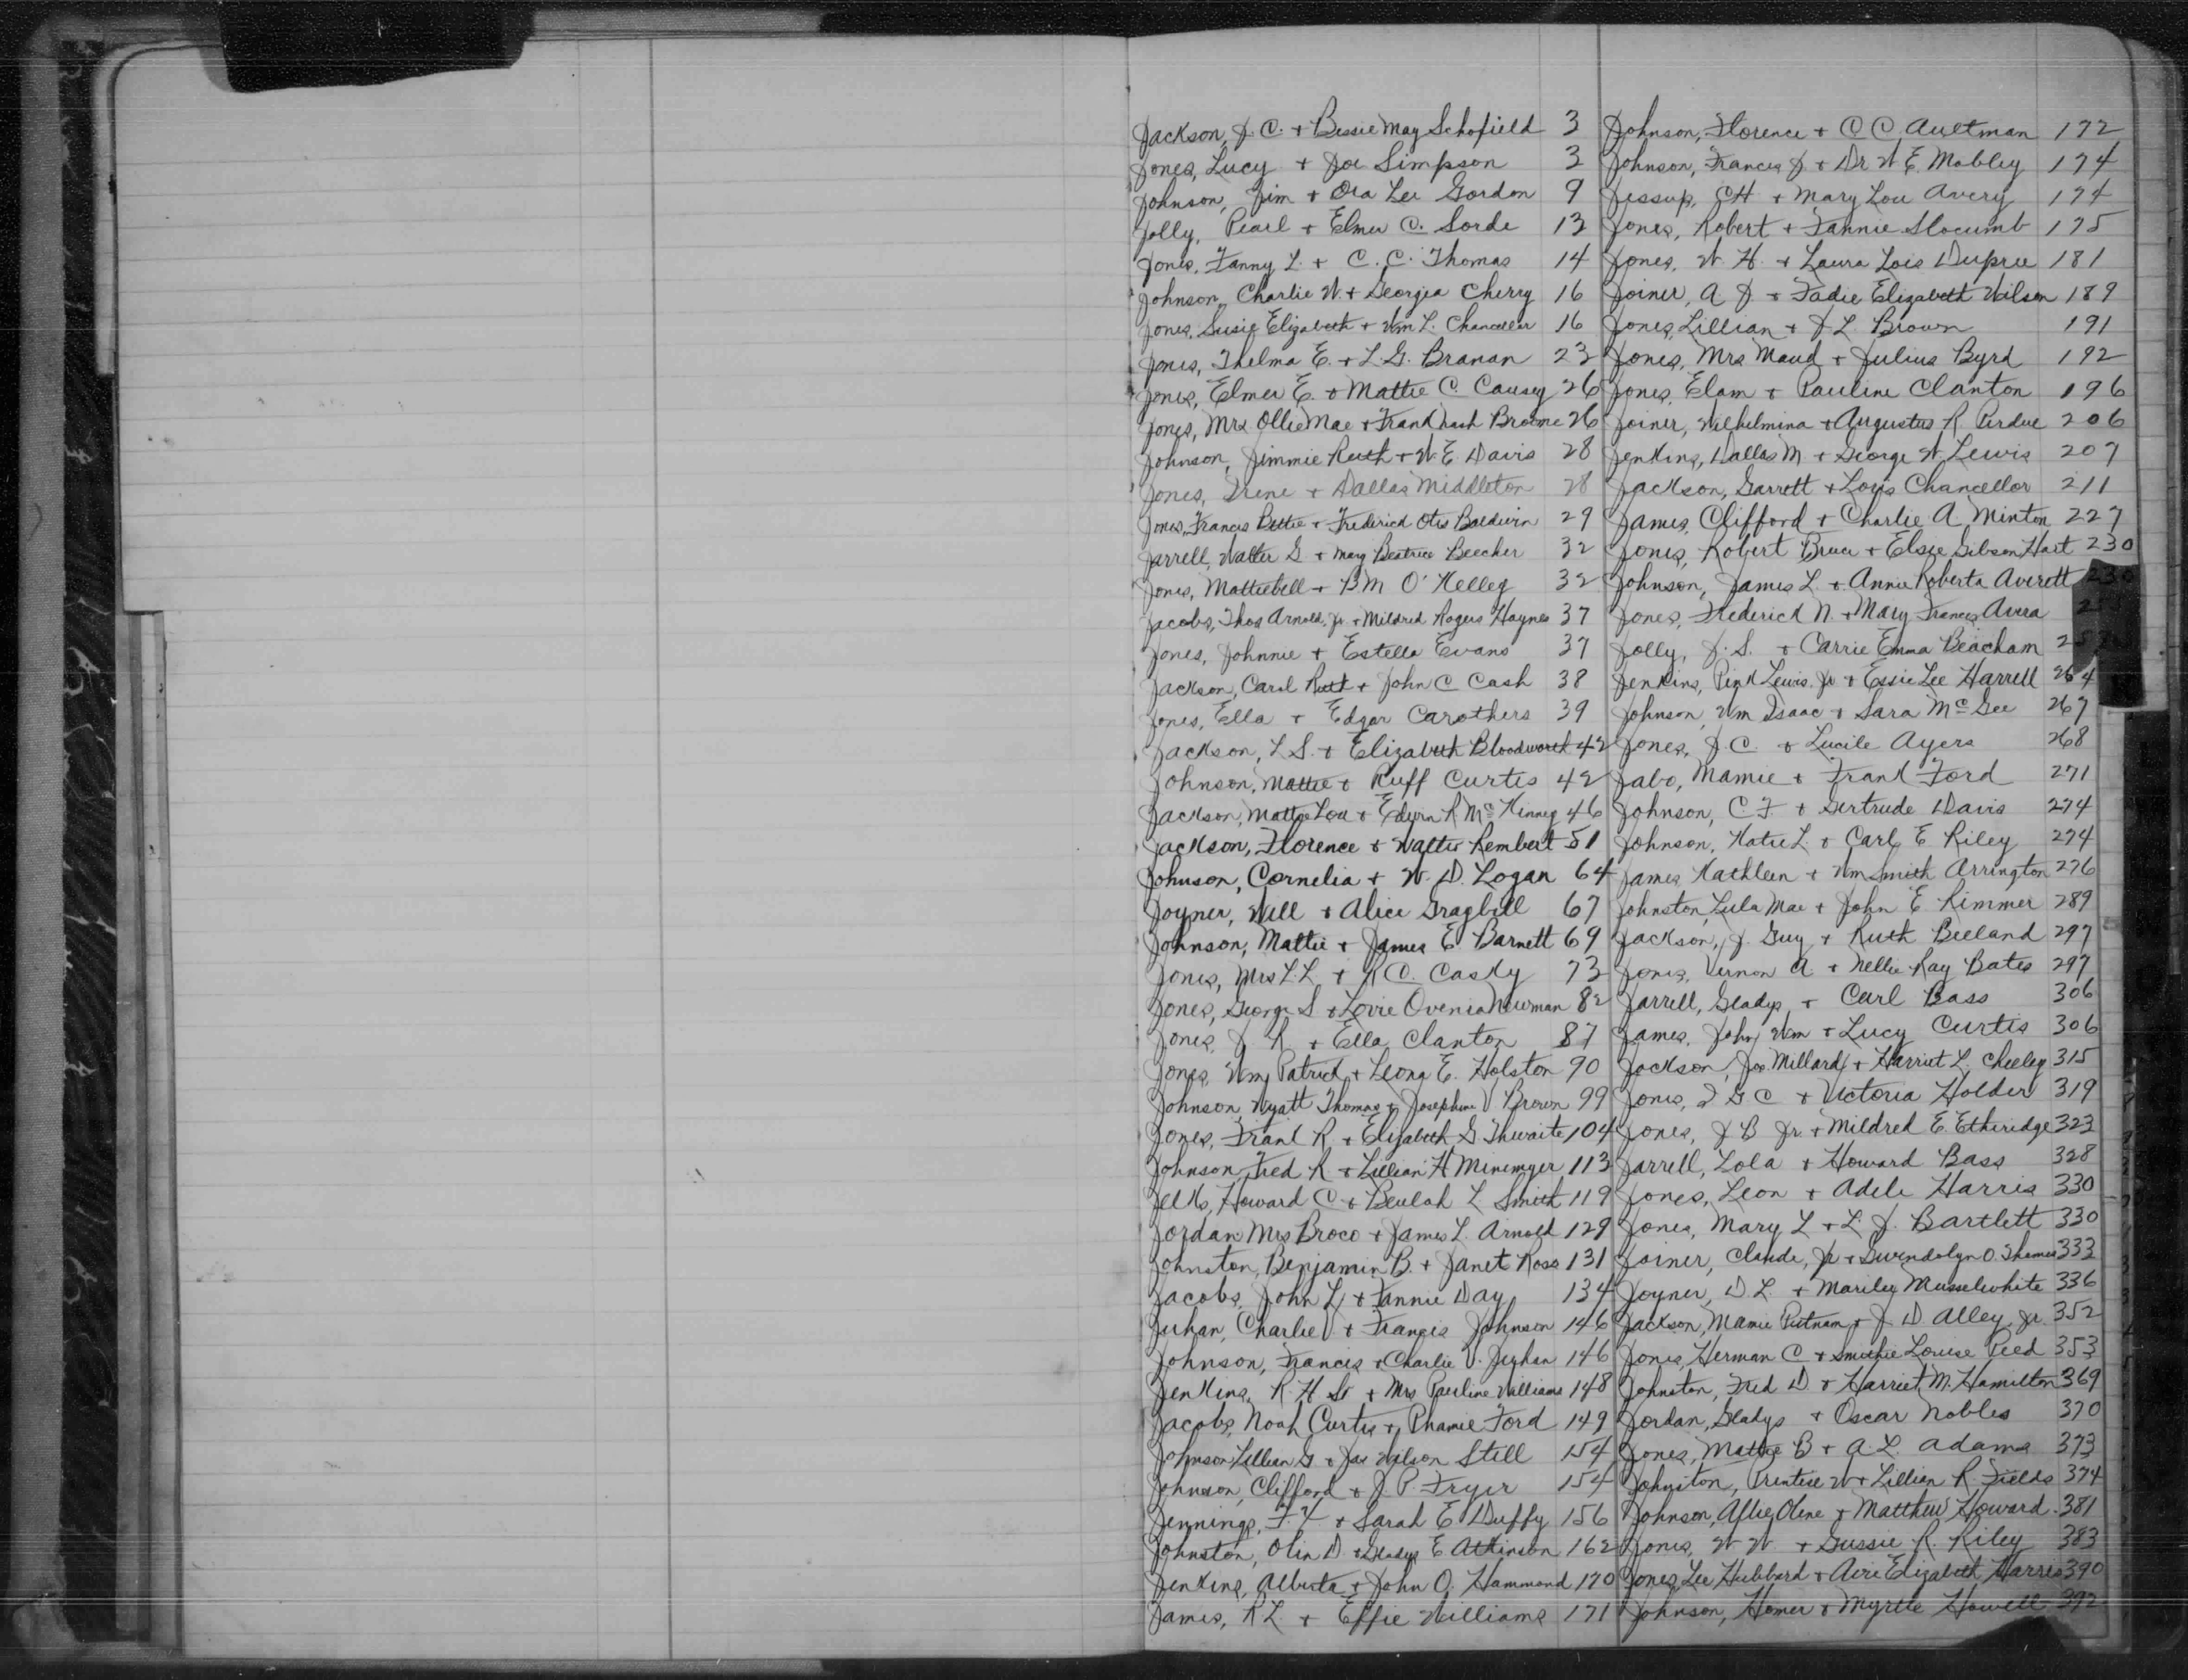 Jackson, J. C. + Bessie May Schofield 3
Jones, Lucy + Joe Simpson 3
Johnson, Jim + Ora Lee Gordon 9
Jolly, Pearl + Elmer C. Sorde 13
Jones, Fanny L. + C. C. Thomas 14
Johnson, Charlie W. + Georgia Cherry 16
Jones, Susie Elizabeth + Wm L. Chancellor 16
Jones, Thelma E. + L. G. Branan 23
Jones, Elmer E. + Mattie C. Causey 26
Jones, Mrs Ollie Mae + Frank Broome 26
Johnson, Jimmie Ruth + W. E. Davis 28
Jones, Irene + Dallas Middleton 28
Jones, Francis Bettie + Frederick Otis Baldwin 29
Jarrell, Walter G + Mary Beatrice Beecher 32
Jones, Mattiebell + B. M O'Kelley 32
Jacobs, Thos Arnold, Jr. + Mildred Rogers Haynes 37
Jones, Johnnie + Estella Evans 37
Jackson, Carol Ruth + John C Cash 38
Jones, Ella + Edgar Carothers 39
Jackson, L. S. + Elizabeth Bloodworth 42
Johnson, Mattie + Ruff Curtis 42
Jackson, Mattie Lou + Edwin R McKinney 46
Jackson, Florence + Walter Rembert 51
Johnson, Cornelia + W. D. Logan 64
Joyner, Will + Alice Graybill 67
Johnson, Mattie + James E Barnett 69
Jones, Mrs L. L. + R C. Casky 73
Jones, George S + Lovie Ovenia Newman 82
Jones, J. R. + Ella Clanton 87
Jones, Wm Patrick + Leona E. Holston 90
Johnson, Wyatt Thomas + Josephine V Brown 99
Jones, Frank R + Elizabeth G Thwaite 104
Johnson, Fred R + Lillian H Minemyer 113
Jelks, Howard C + Beulah L Smith 119
Jordan Mrs Broco + James L. Arnold 129
Johnston, Benjamin B. + Janet Ross 131
Jacobs, John L + Fannie Day 134
Juhan, Charlie V. + Francis Johnson 146
Johnson, Francis + Charlie V. Juhan 146
Jenkins, R. H Sr + Mrs Pauline Williams 148
Jacobs, Noah Curtis + Phamie Ford 149
Johnson Lillian G + Jas Wilson Still 154
Johnson, Clifford + J. P. Fryer 154
Jennings, F. + Sarah E Duffy 156
Johnston, Olin D + Gladys E Atkinson 162
Jenkins, Alberta + John O. Hammond 170
James, R L. + Effie Williams 171
Johnson, Florence + C C Aultman 172
Johnson, Francis J + Dr W E Mobley 174
Jessup, C H + Mary Lou Avery 174
Jones, Robert + Fannie Slocumb 175
Jones, W. H. + Laura Lois Dupree 181
Joiner, A J. + Sadie Elizabeth Wilson 189
Jones, Lillian + J L Brown 191
Jones, Mrs Maud + Julius Byrd 192
Jones, Elam + Pauline Clanton 196
Joiner, Wilhelmina + Augustus R. Perdue 206
Jenkins, Dallas M + George W. Lewis 207
Jackson, Garrett + Lois Chancellor 211
James, Clifford + Charlie A Minton 227
Jones, Robert Bruce + Elsie Gibson Hart 230
Johnson, James L. + Annie Roberta Averett 230
Jones, Frederick N. + Mary Frances Avera
Jolly, J. S. + Carrie Emma Beacham
Jenkins, Pink Lewis, Jr + Essie Lee Harrell 264
Johnson, Wm Isaac + Sara McGee 267
Jones, J. C. + Lucile Ayers 268
Jabo, Mamie + Frank Ford 271
Johnson, C F + Gertrude Davis 274
Johnson, Katie L. + Carl E Riley 274
James Kathleen + Wm Smith Arrington 276
Johnston, Lula Mae + John E Rimmer 289
Jackson, J. Guy + Ruth Beeland 297
Jones, Vernon A + Nellie Ray Bates 297
Jarrell, Gladys + Carl Bass 306
James, John Wm + Lucy Curtis 306
Jackson, Jos. Millard + Harriet L. Cheeley 315
Jones, I G C + Victoria Holder 319
Jones, J B Jr. + Mildred E. Etheridge 323
Jarrell, Lola + Howard Bass 328
Jones, Leon + Adele Harris 330
Jones, Mary L + L. J. Bartlett 330
Joiner, Claude, Jr + Gwendolyn O. Thames 333
Joyner, D L. + Mariley Musselwhite 336
Jackson, Mamie Putnam + J D Alley, Jr. 352
Jones, Herman C + Louise Peed 353
Johnston, Fred D. + Harriet M. Hamilton 369
Jordan, Gladys + Oscar Nobles 370
Jones, Mattie B + A. L. Adams 373
Johnston, Prentice W + Lillian R. Fields 374
Johnson, Allie Olene + Matthew Howard 381
Jones, W W. + Gussie R. Riley 383
Jones, Lee Hubbard + Avie Elizabeth Harris 390
Johnson, Homer + Myrtle Howell 392